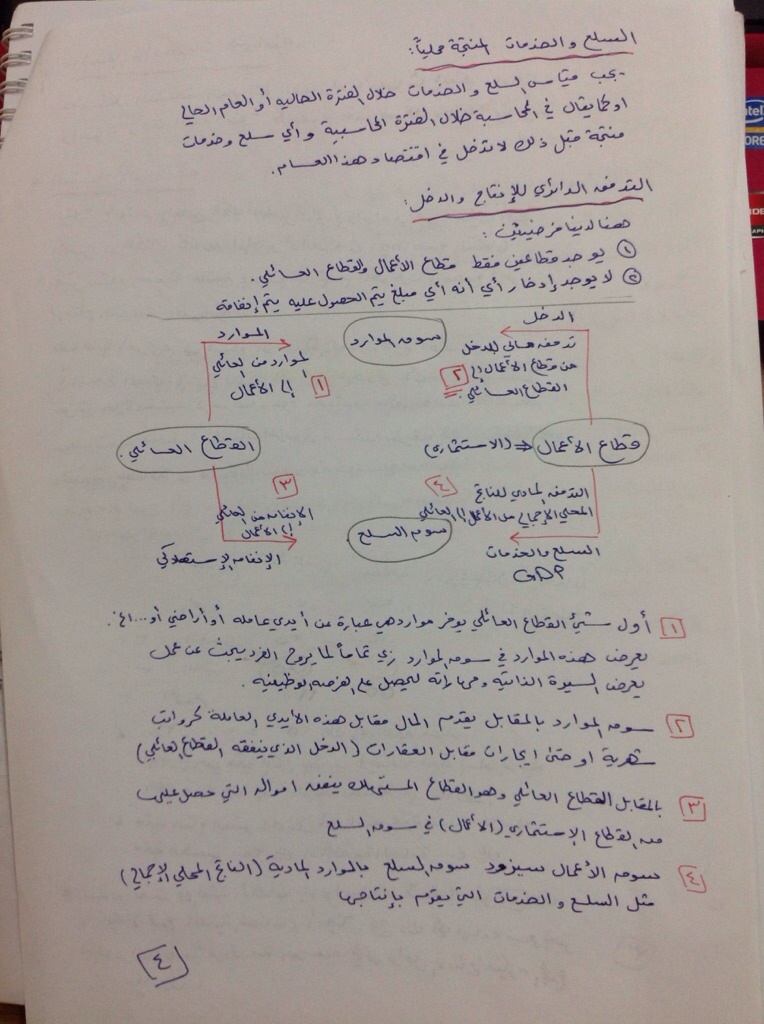 السلع والخدمات المنتجة محلياً:
يجب قياس السلع والخدمات خلال الفترة الحالية أو العام الحالي
او كما يقال في المحاسبة خلال الفترة المحاسبية وأي سلع وخدمات
منتجة قبل ذلك لا تدخل في اقتصاد هذا العام.
التدفق الدائري للإنتاج والدخل:
هنا لدينا فرضيتين:
① يوجد قطاعين فقط قطاع الأعمال والقطاع العائلي.
② لا يوجد إدخار أي أنه أي مبلغ يتم الحصول عليه يتم إنفاقة
الدخل
سوق الموارد
الموارد
تدفق مالي للدخل
من قطاع الأعمال إلى
القطاع العائلي
٢
الموارد من العائلي
إلى الأعمال
١
قطاع الأعمال ⇐ (الاستثماري)
القطاع العائلي.
التدفق المادي للناتج
المحلي الإجمالي من الأعمال إلى العائلي
٤
٣
الإنفاق من العائلي
إلى الأعمال
سوق السلع
السلع والخدمات
GDP
الإنفاق الإستهلاكي
١ أول شيئ القطاع العائلي يوفر موارد هي عبارة عن أيدي عاملة أو أراضي أو...الخ.
يعرض هذه الموارد في سوق الموارد زي تماماً لما يروح الفرد يبحث عن عمل
يعرض السيرة الذاتية ومهاراته ليحصل على الفرصة الوظيفية.
٢ سوق الموارد بالمقابل يقدم المال مقابل هذه الأيدي العاملة كرواتب
شهرية او حتى ايجارات مقابل العقارات (الدخل الذي ينفقه القطاع العائلي)
٣ بالمقابل القطاع العائلي وهو القطاع المستهلك ينفق امواله التي حصل عليها
من القطاع الإستثماري (الأعمال) في سوق السلع
٤ سوق الأعمال سيزود سوق السلع بالموارد المادية (الناتج المحلي الإجمالي)
مثل السلع والخدمات التي يقوم بإنتاجها
٤
intel
CORE